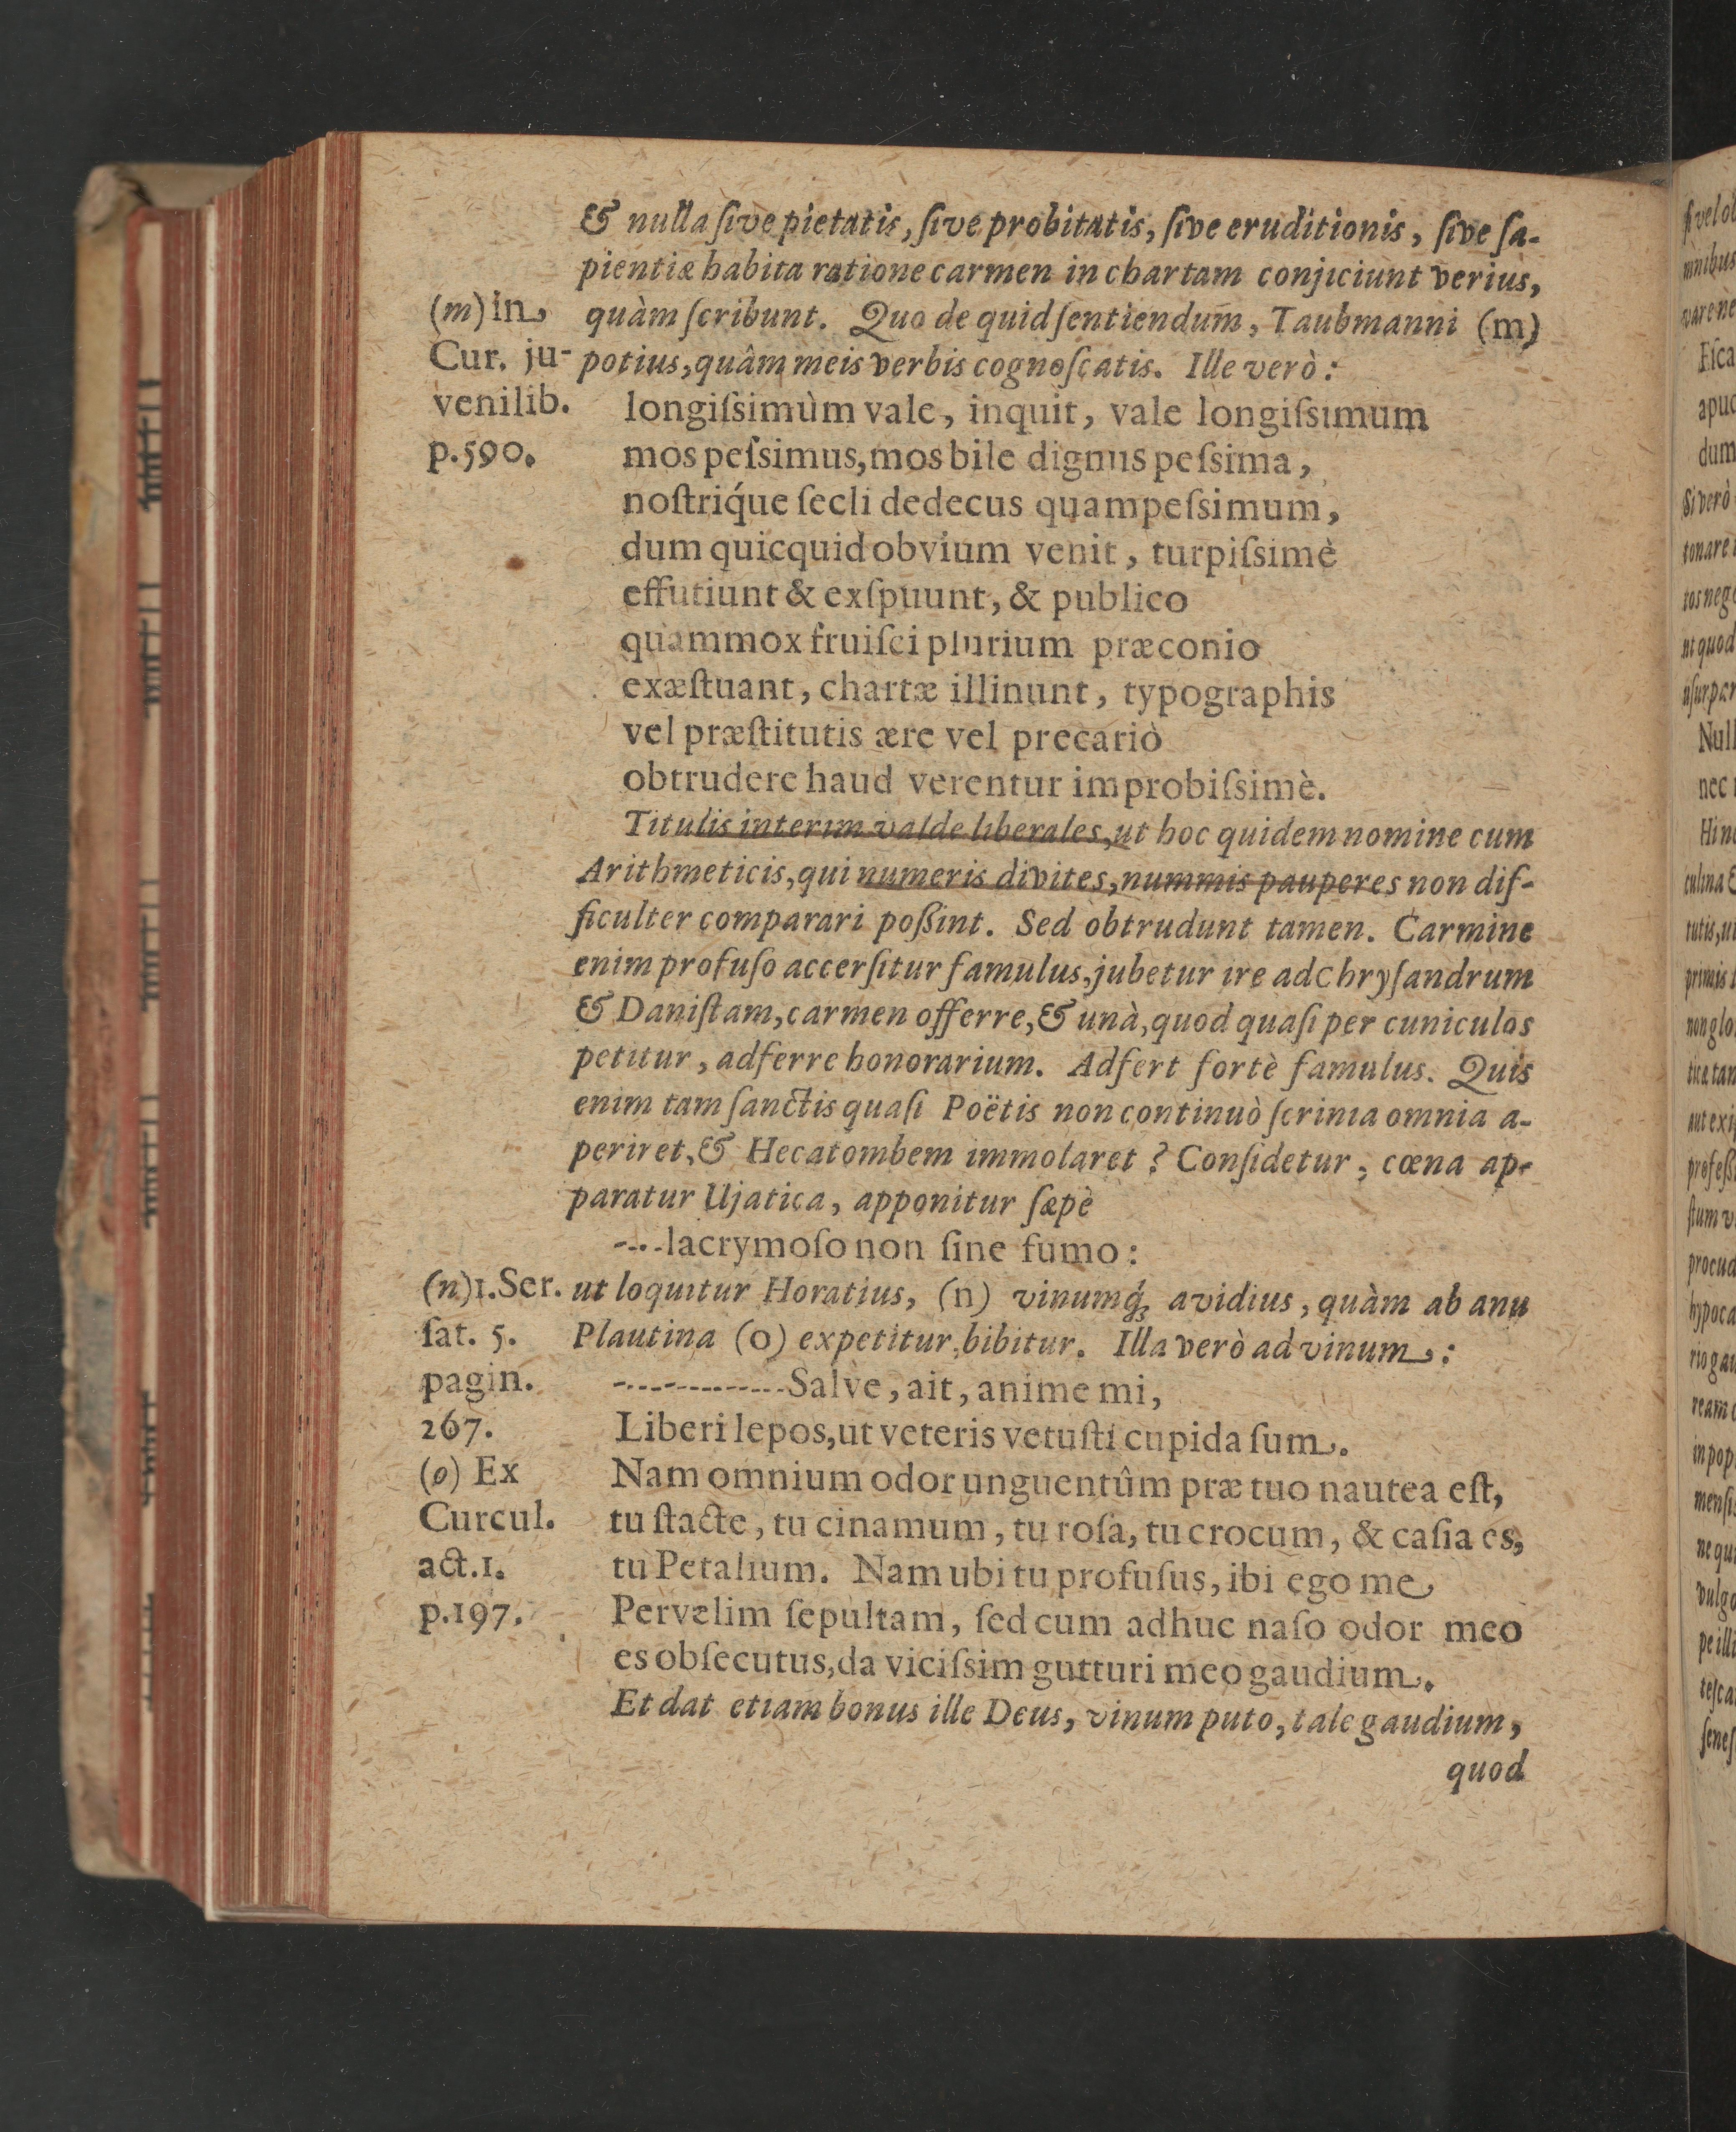 & nulla ſive pietatis, ſive probitatis, ſive eruditionis, ſive ſa-
pientiæ habita ratione carmen in chartam conjiciunt verius,
quàm ſcribunt. Quo de quid ſentiendum̄, Taubmanni (m)
potius, quâm meis verbis cognoſcatis. Ille verò:
(m) in
Cur. ju-
venilib.
p. 590.
longiſsimùm vale, inquit, vale longiſsimum
mos peſsimus, mos bile dignus peſsima,
noſtriq́ue ſecli dedecus quampeſsimum,
dum quicquid obvium venit, turpiſsimè
effutiunt & exſpuunt, & publico
quammox fruiſci plurium præconio
exæſtuant, chartæ illinunt, typographis
vel præſtitutis ære vel precariò
obtrudere haud verentur improbiſsimè.
Titulis interim valde liberales, ut hoc quidem nomine cum
Arithmeticis, qui numeris divites, nummis pauperes non dif-
ficulter comparari poßint. Sed obtrudunt tamen. Carmine
enim profuſo accerſitur famulus, jubetur ire ad Chryſandrum
& Daniſtam, carmen offerre, & unà, quod quaſi per cuniculos
petitur, adferre honorarium. Adfert fortè famulus. Quis
enim tam ſanctis quaſi Poëtis non continuò ſcrinia omnia a-
periret, & Hecatombem immolaret? Conſidetur, cœna ap-
paratur Ujatica, apponitur ſæpè
-..-lacrymoſo non ſine fumo:
ut loquitur Horatius, (n) vinumq́; avidius, quàm ab anu
Plautina (o) expetitur, bibitur. Illa verò ad vinum:
(n) 1. Ser.
ſat. 5.
pagin.
267.
(o) Ex
Curcul.
act. 1.
p. 197.
-------------Salve, ait, anime mi,
Liberi lepos, ut veteris vetuſti cupida ſum.
Nam omnium odor unguentûm præ tuo nautea eſt,
tu ſtacte, tu cinamum, tu roſa, tu crocum, & caſia es,
tu Petalium. Nam ubi tu profuſus, ibi ego me
Pervelim ſepultam, ſed cum adhuc naſo odor meo
es obſecutus, da viciſsim gutturi meo gaudium.
Et dat etiam bonus ille Deus, vinum puto, tale gaudium,
quod